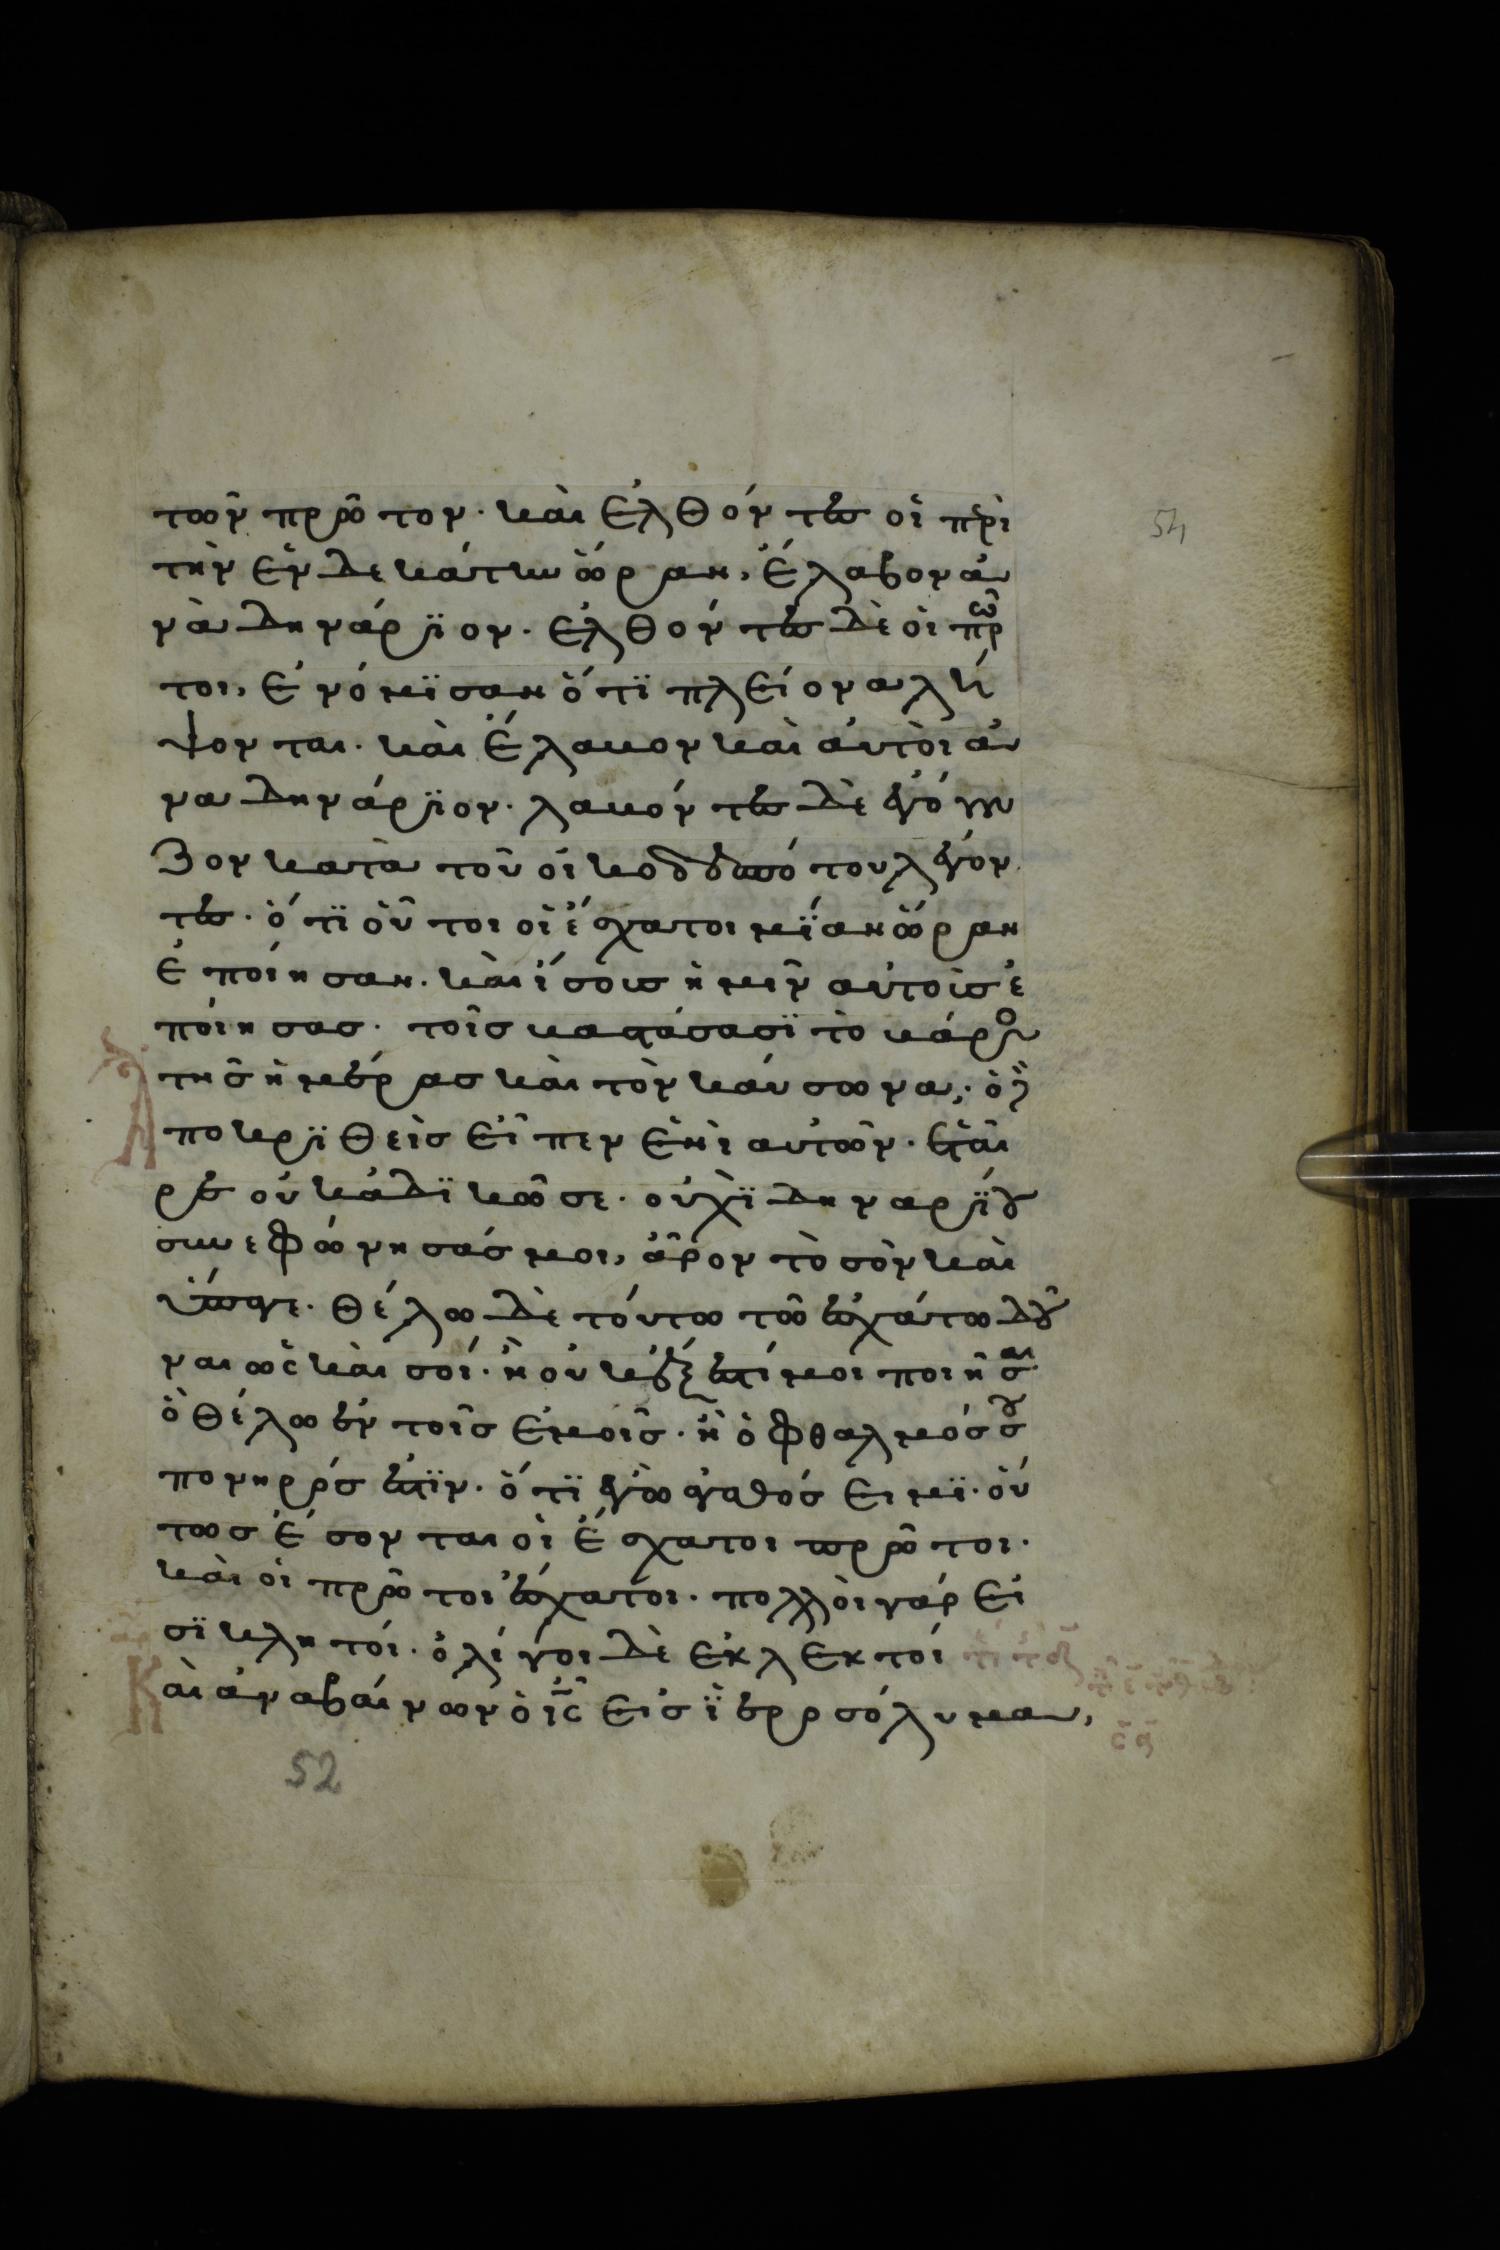 τῶν πρώτων· καὶ ἐλθόντες οἱ περὶ
τὴν ἑνδεκάτην ὥραν, ἔλαβον ἀ
νὰ δηνάριον· ἐλθόντες δὲ οἱ πρῶ
τοι, ἐνόμϊσαν ὅτϊ πλείονα λή
ψονται· καὶ ἔλαβον καὶ αὐτοὶ ἀ
να δηνάριον· λαβόντες δὲ ἐγόγγυ
ζον κατὰ τοῦ οἰκοδεσπότου λέγον
τες· ὅτϊ οὗτοι οἱ ἔσχατοι μΐαν ὥραν
ἐποίησαν· καὶ ἴσους ἡμῖν αὐτοὺς ἐ
ποίησας· τοῖς βαστάσασϊ τὸ βάρος
τῆς ἡμέρας καὶ τὸν καύσωνα· ὁ δὲ
ἀποκριθεὶς εἶπεν ἑνὶ αὐτῶν· ἑταῖ
ρε οὐκ ἀδϊκῶ σε· οὐχῒ δηναρίου
συνεφώνησάς μοι, ἆρον τὸ σὸν καὶ
ὕπαγε· θέλω δὲ τούτω τῶ ἐσχάτω δοῦ
ναι ὡς καὶ σοί· ἢ οὐκ ἔξεστί μοι ποιῆσαι
ὃ θέλω ἐν τοῖς ἐμοῖς· ἢ ὁ ὀφθαλμός σου
πονηρός ἐστϊν· ὅτϊ ἐγὼ ἀγαθός εἰμϊ· οὕ
τως ἔσονται οἱ ἔσχατοι πρῶτοι·
καὶ οἱ πρῶτοι ἔσχατοι· πολλοὶ γάρ εἰ
σϊ κλητοί· ὀλίγοι δὲ ἐκλεκτοί
Καὶ ἀναβαίνων ὁ ις εἰς ϊεροσόλυμα,
54
52